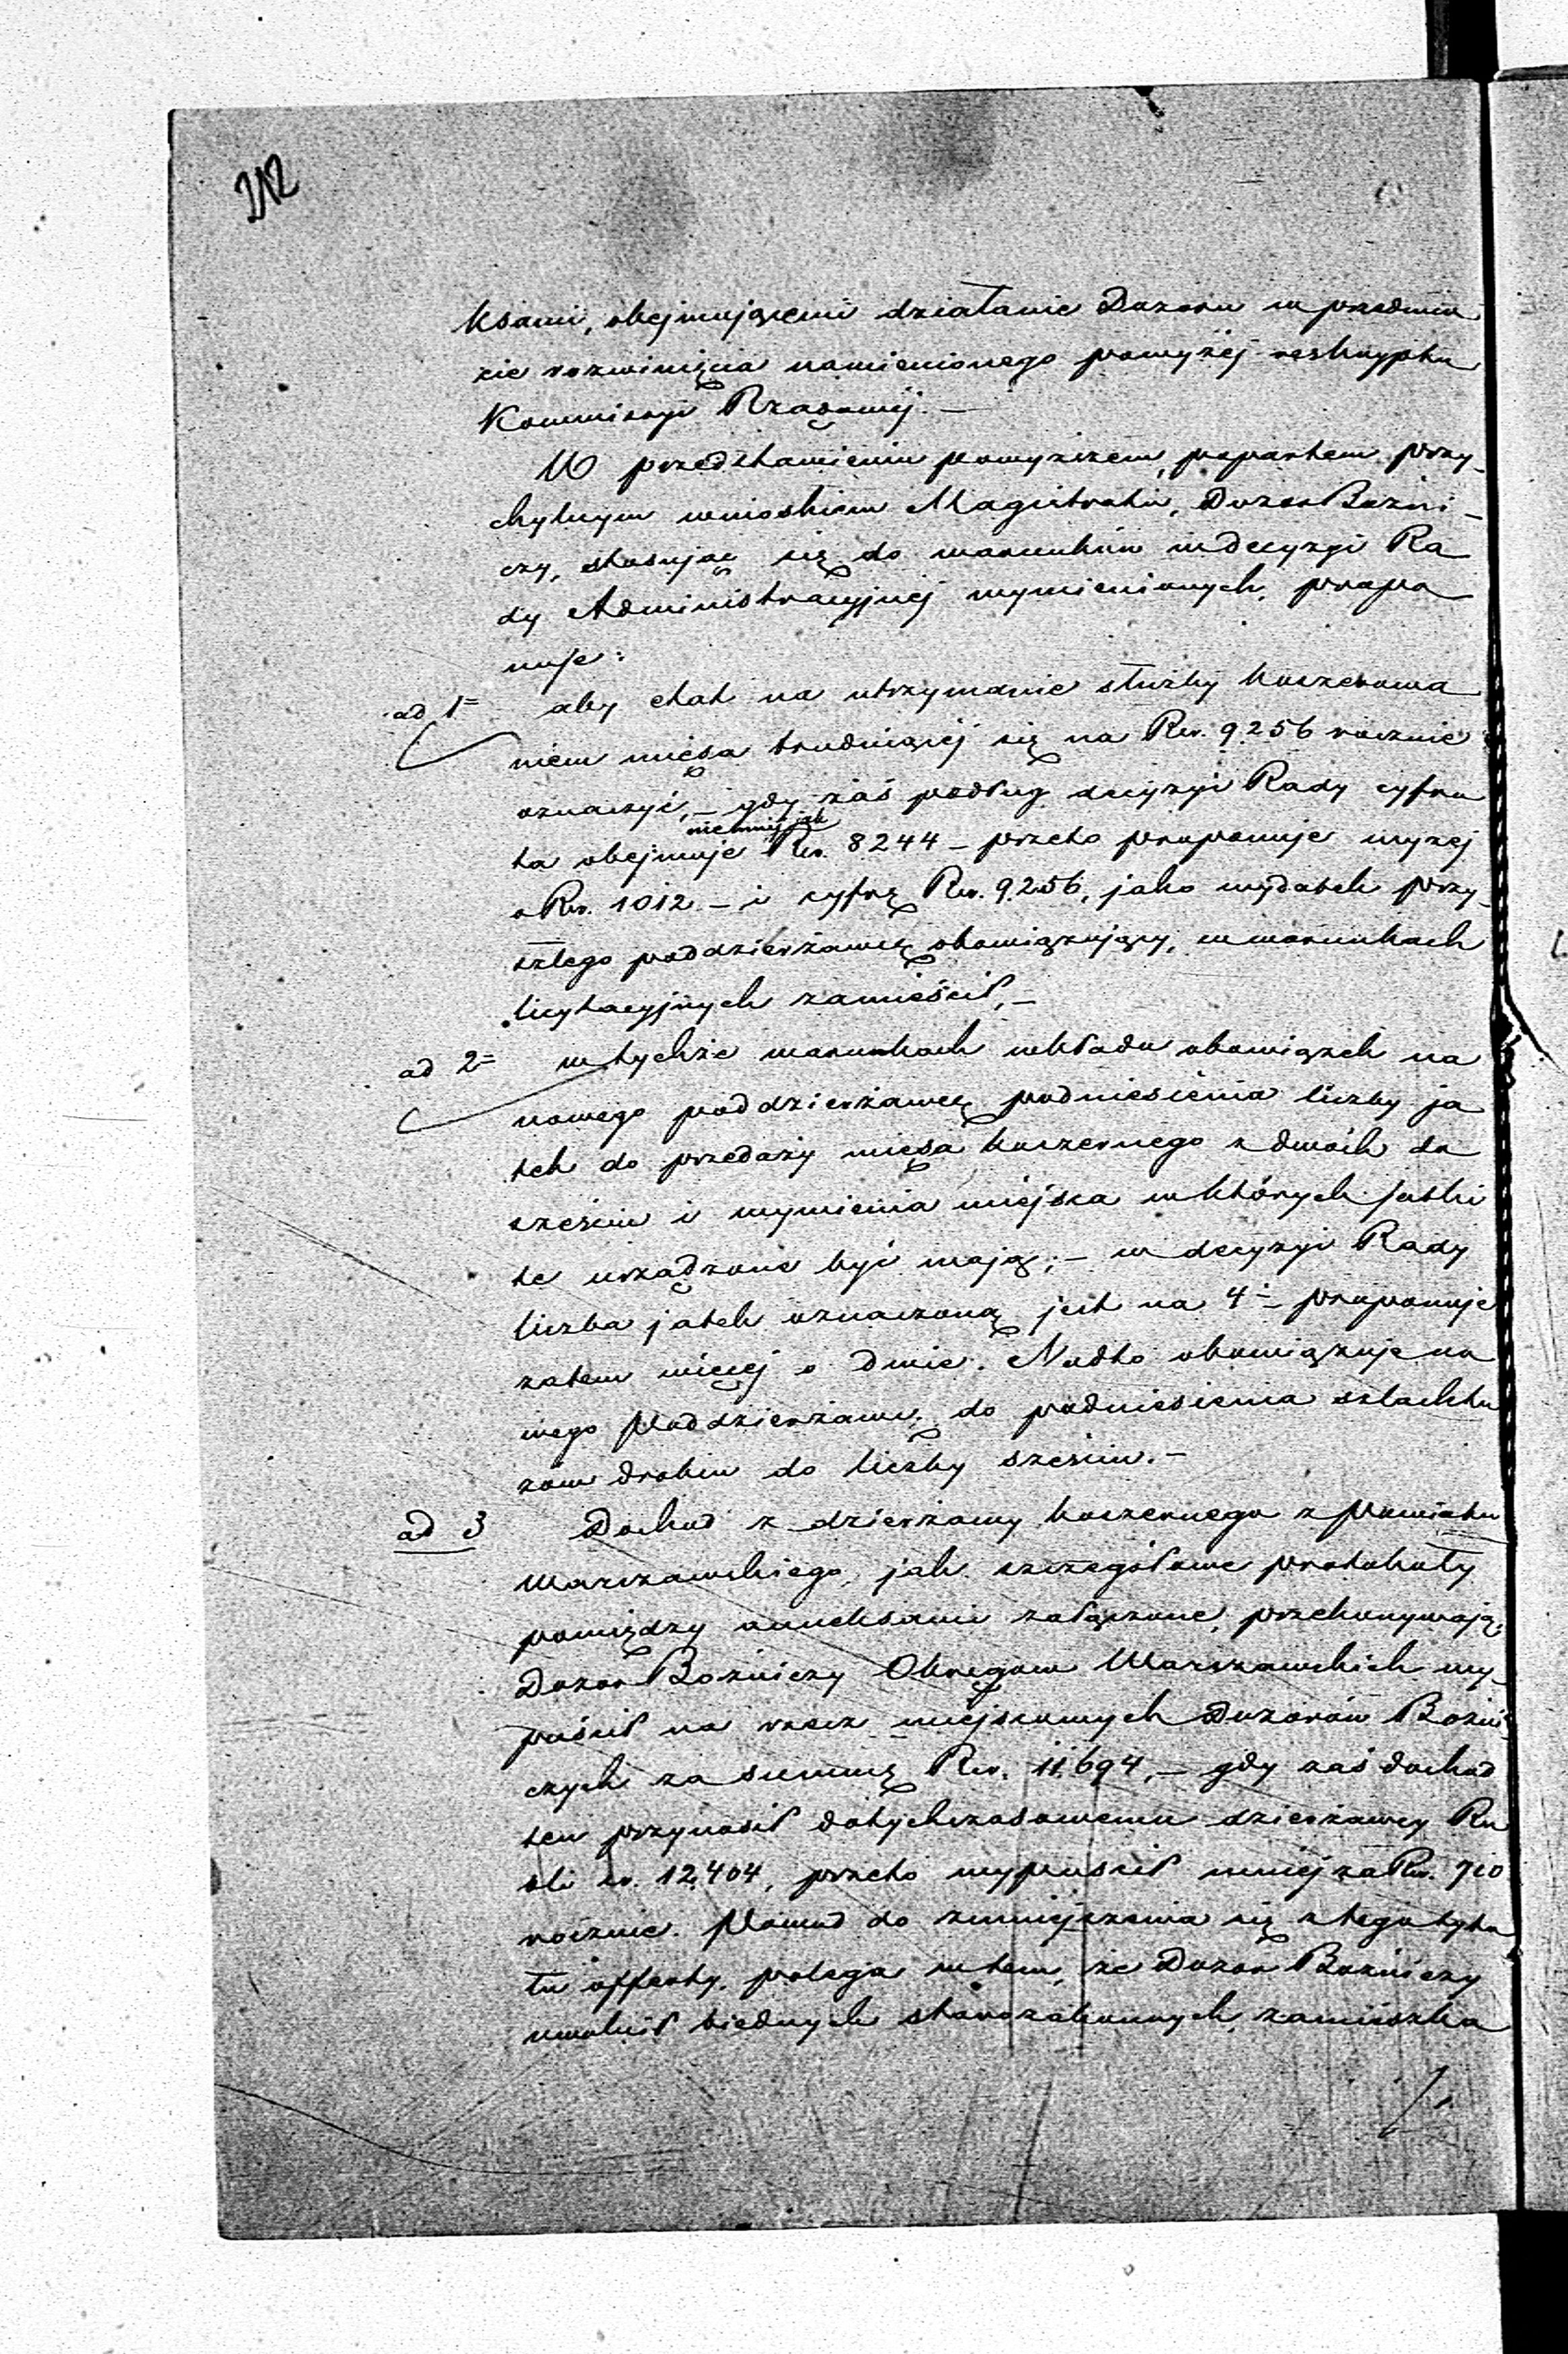 212
ksami, obejmującemi działanie Dozoru w przedmio
cie rozwinięcia namienionego powyżej reskryptu
Kommissyi Rządowej. —
W przedstawieniu powyższem, popartem przy-
chylnym wnioskiem Magistratu, Dozor Bożni-
czy, stosując się do warunków w decyzyi Ra
dy Administracyjnej wymienionych, propo
nuje:
ad 1= aby etat na utrzymanie służby koszerowa
niem mięsa trudniącej się na Rsr. 9256 rocznie
oznaczyć, – gdy zaś podług decyzyi Rady cyfra
niemniej jak
ta obejmuje Rsr. 8244 – przeto proponuje wyzej
o Rsr. 1012 – i cyfrę Rsr. 9256, jako wydatek przy-
szłego poddzierżawcę obowiązujący, w warunkach
licytacyjnych zamieścił, –
ad 2= w tychże warunkach wkłada obowiązek na
nowego poddzierżawcę podniesienia liczby ja
tek do przedaży mięsa koszernego z dwóch do
sześciu i wymienia miejsca w których jatki
te urządzone być mają; – w decyzyi Rady
liczba jatek oznaczoną jest na 4= proponuje
zatem więcej o dwie. Nadto obowiązuje no
wego Poddzierżawcę do podniesienia szlachtu
zów drobiu do liczby sześciu. –
ad 3 Dochód z dzierżawy koszernego z Powiatu
Warszawskiego, jak szczegółowe protokoły
pomiędzy annexami załączone, przekonywają,
Dozor Bożniczy Okręgów Warszawskich wy-
puścił na rzecz miejscowych Dozorów Bożni
czych za summę Rsr. 11,694, – gdy zaś dochód
ten przynosił dotychczasowemu dzierżawcy Ru
bli sr. 12,404, przeto wypuścił mniej za Rsr. 710
rocznie. Powód do zmniejszenia się z tego tytu
łu offerty, polega w tem, że Dozor Bożniczy
uwolnił biednych starozakonnych, zamieszka